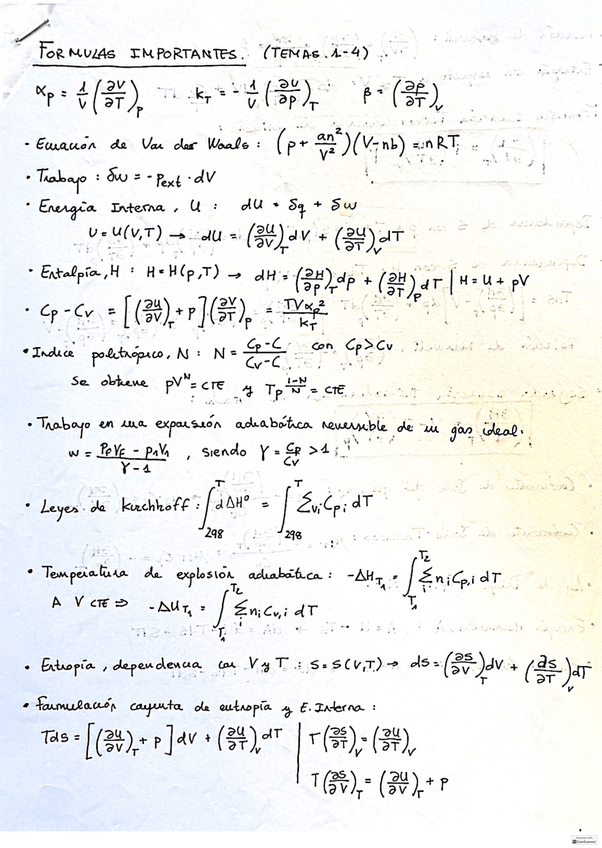 FORMULAS IMPORTANTES. (TEMAS 1-4)
αp = 1/V (∂V/∂T)p   kT = - 1/V (∂V/∂p)T   β = (∂p/∂T)V
· Ecuación de Van der Waals: (p + an²/V²)(V-nb) = nRT
· Trabajo: δw = -pext · dV
· Energía Interna, U: dU = δq + δw
U = U(V,T) → dU = (∂U/∂V)T dV + (∂U/∂T)V dT
· Entalpía, H: H = H(p,T) → dH = (∂H/∂p)T dp + (∂H/∂T)p dT | H = U + pV
· Cp - Cv = [(∂U/∂V)T + p] (∂V/∂T)p = TVαp²/kT
· Indice politrópico, N: N = Cp-C/Cv-C con Cp>Cv
Se obtiene pV^N = CTE y Tp^(1-N/N) = CTE
· Trabajo en una expansión adiabática reversible de un gas ideal.
w = PfVf - p1V1/γ-1, siendo γ = Cp/Cv > 1
· Leyes de Kirchhoff: ∫298^T dΔH° = ∫298^T Σνi Cpi dT
· Temperatura de explosión adiabática: -ΔHT1 = ∫T1^T2 Σi ni Cp,i dT
A V CTE ⇒ -ΔUT1 = ∫T1^T2 Σi ni Cv,i dT
· Entropía, dependencia con V y T: S = S(V,T) → dS = (∂S/∂V)T dV + (∂S/∂T)V dT
· Formulación conjunta de entropía y E. Interna:
TdS = [(∂U/∂V)T + p] dV + (∂U/∂T)V dT | T(∂S/∂T)V = (∂U/∂T)V
T(∂S/∂V)T = (∂U/∂V)T + p
CamScanner